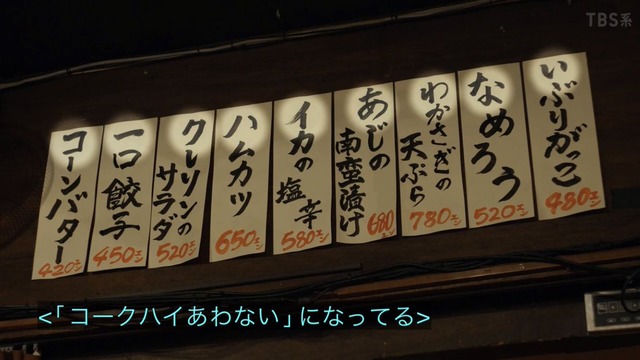 TBS系
いぶりがっこ
480エン
なめろう
520エン
わかさぎの
天ぷら
780エン
あじの
南蛮漬け
680エン
イカの
塩辛
580エン
ハムカツ
650エン
クレソンの
サラダ
520エン
一口餃子
450エン
コーンバター
420エン
<「コークハイあわない」になってる>